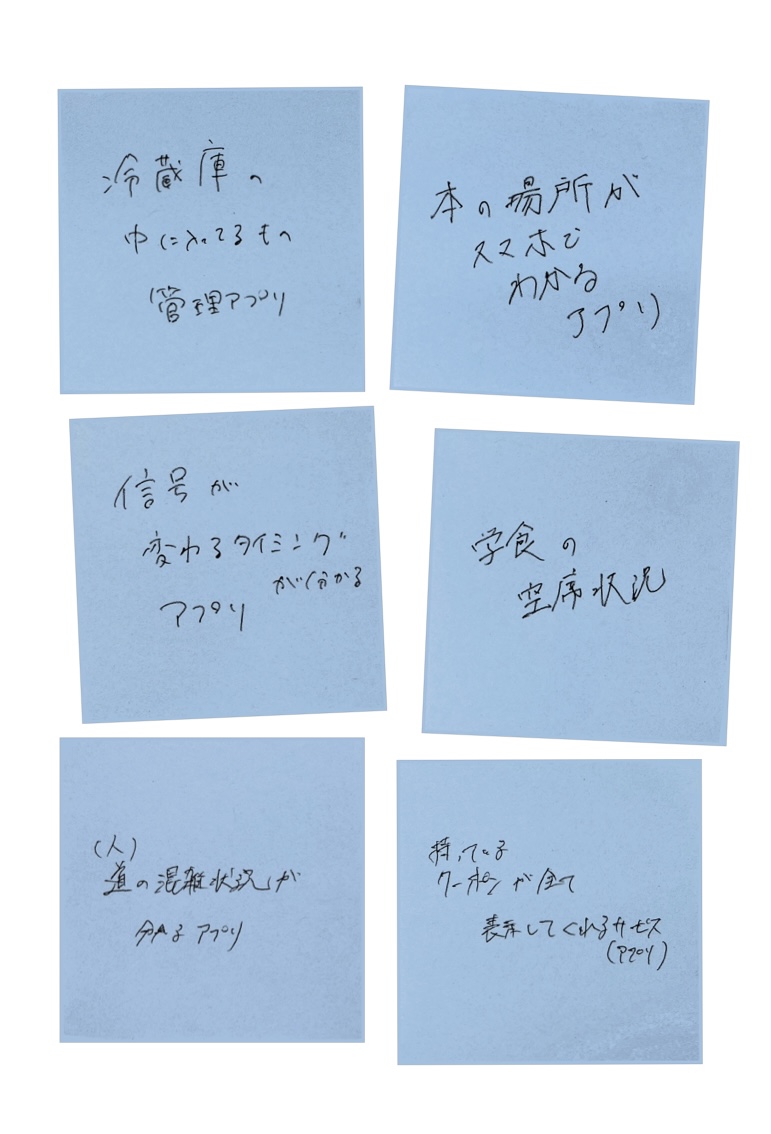 冷蔵庫の
中に入ってるもの
管理アプリ
本の場所が
スマホで
わかる
アプリ
信号が
変わるタイミング
が分かる
アプリ
学食の
空席状況
(人)
道の混雑状況が
分かる アプリ
持っている
クーポンが全て
表示してくれるサービス
(アプリ)